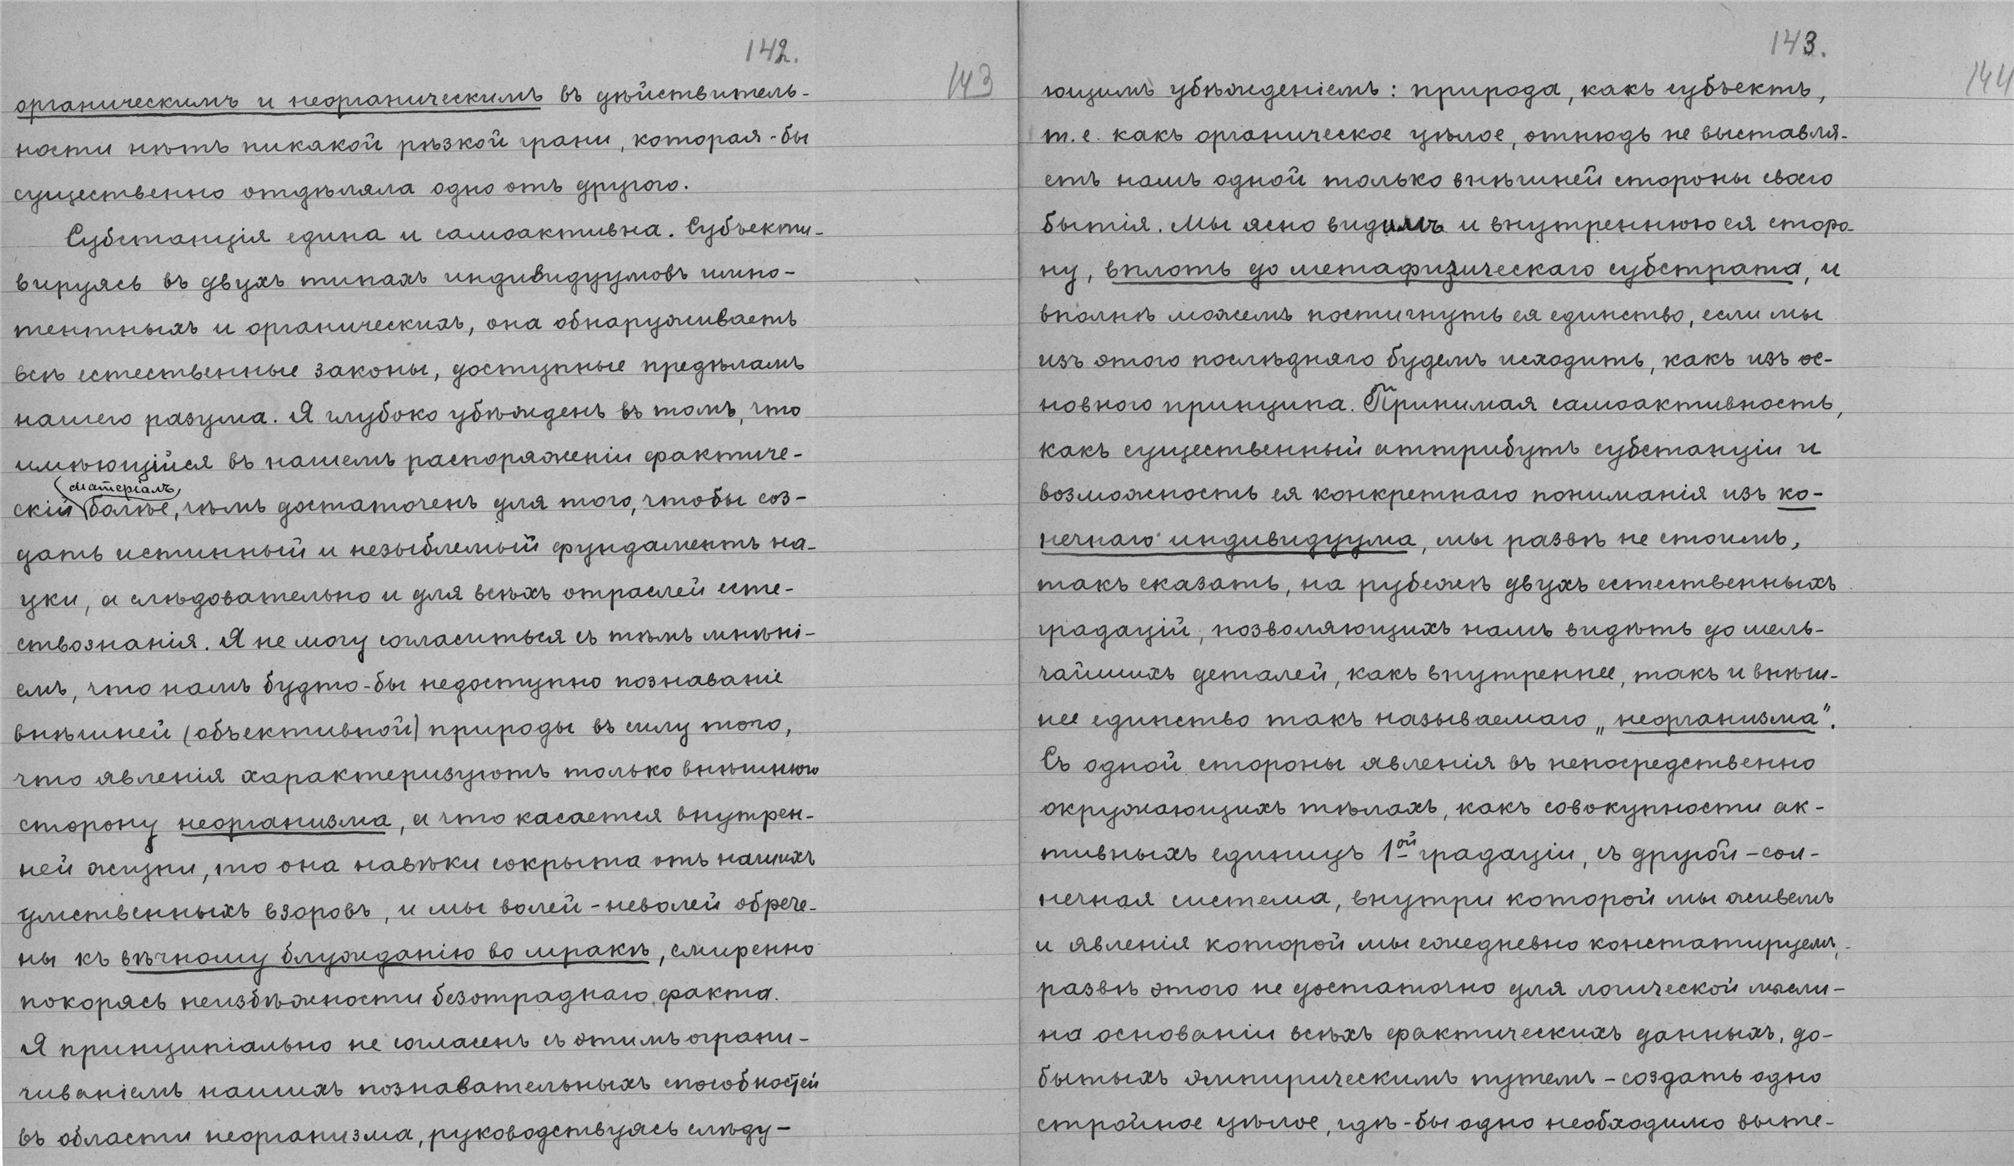 142.
143
органическимъ и неорганическимъ въ дѣйствитель-
ности нѣтъ никакой рѣзкой грани, которая-бы
существенно отдѣляла одно отъ другого.
Субстанція едина и самоактивна. Субъекти-
вируясь въ двухъ типахъ индивидуумовъ импо-
тентныхъ и органическихъ, она обнаруживаетъ
всѣ естественные законы, доступные предѣламъ
нашего разума. Я глубоко убѣжденъ въ томъ, что
имѣющійся въ нашемъ распоряженіи фактиче-
матеріалъ
скій болѣе, чѣмъ достаточенъ для того, чтобы соз-
дать истинный и незыблемый фундаментъ на-
уки, а слѣдовательно и для всѣхъ отраслей есте-
ствознанія. Я не могу согласиться съ тѣмъ мнѣні-
емъ, что намъ будто-бы недоступно познаваніе
внѣшней (объективной) природы въ силу того,
что явленія характеризуютъ только внѣшнюю
сторону неорганизма, а что касается внутрен-
ней жизни, то она навѣки сокрыта отъ нашихъ
умственныхъ взоровъ, и мы волей-неволей обрече-
ны къ вѣчному блужданію во мракѣ, смиренно
покорясь неизбѣжности безотраднаго факта.
Я принципіально не согласенъ съ этимъ ограни-
чиваніемъ нашихъ познавательныхъ способностей
въ области неорганизма, руководствуясь слѣду-
143.
144
ющимъ убѣжденіемъ: природа, какъ субъектъ,
т.е. какъ органическое цѣлое, отнюдь не выставля-
етъ намъ одной только внѣшней стороны своего
бытія. Мы ясно видимъ и внутреннюю ея сторо-
ну, вплоть до метафизическаго субстрата, и
вполнѣ можемъ постигнуть ея единство, если мы
изъ этого послѣдняго будемъ исходить, какъ изъ ос-
новного принципа. Принимая самоактивность,
какъ существенный аттрибутъ субстанціи и
возможность ея конкретнаго пониманія изъ ко-
нечнаго индивидуума, мы развѣ не стоимъ,
такъ сказать, на рубежѣ двухъ естественныхъ
градацій, позволяющихъ намъ видѣть до мель-
чайшихъ деталей, какъ внутреннее, такъ и внѣш-
нее единство такъ называемаго „неорганизма".
Съ одной стороны явленія въ непосредственно
окружающихъ тѣлахъ, какъ совокупности ак-
тивныхъ единицъ 1ой градаціи, съ другой - сол-
нечная система, внутри которой мы живемъ
и явленія которой мы ежедневно констатируемъ,
развѣ этого не достаточно для логической мысли-
на основаніи всѣхъ фактическихъ данныхъ, до-
бытыхъ эмпирическимъ путемъ - создать одно
стройное цѣлое, гдѣ-бы одно необходимо выте-